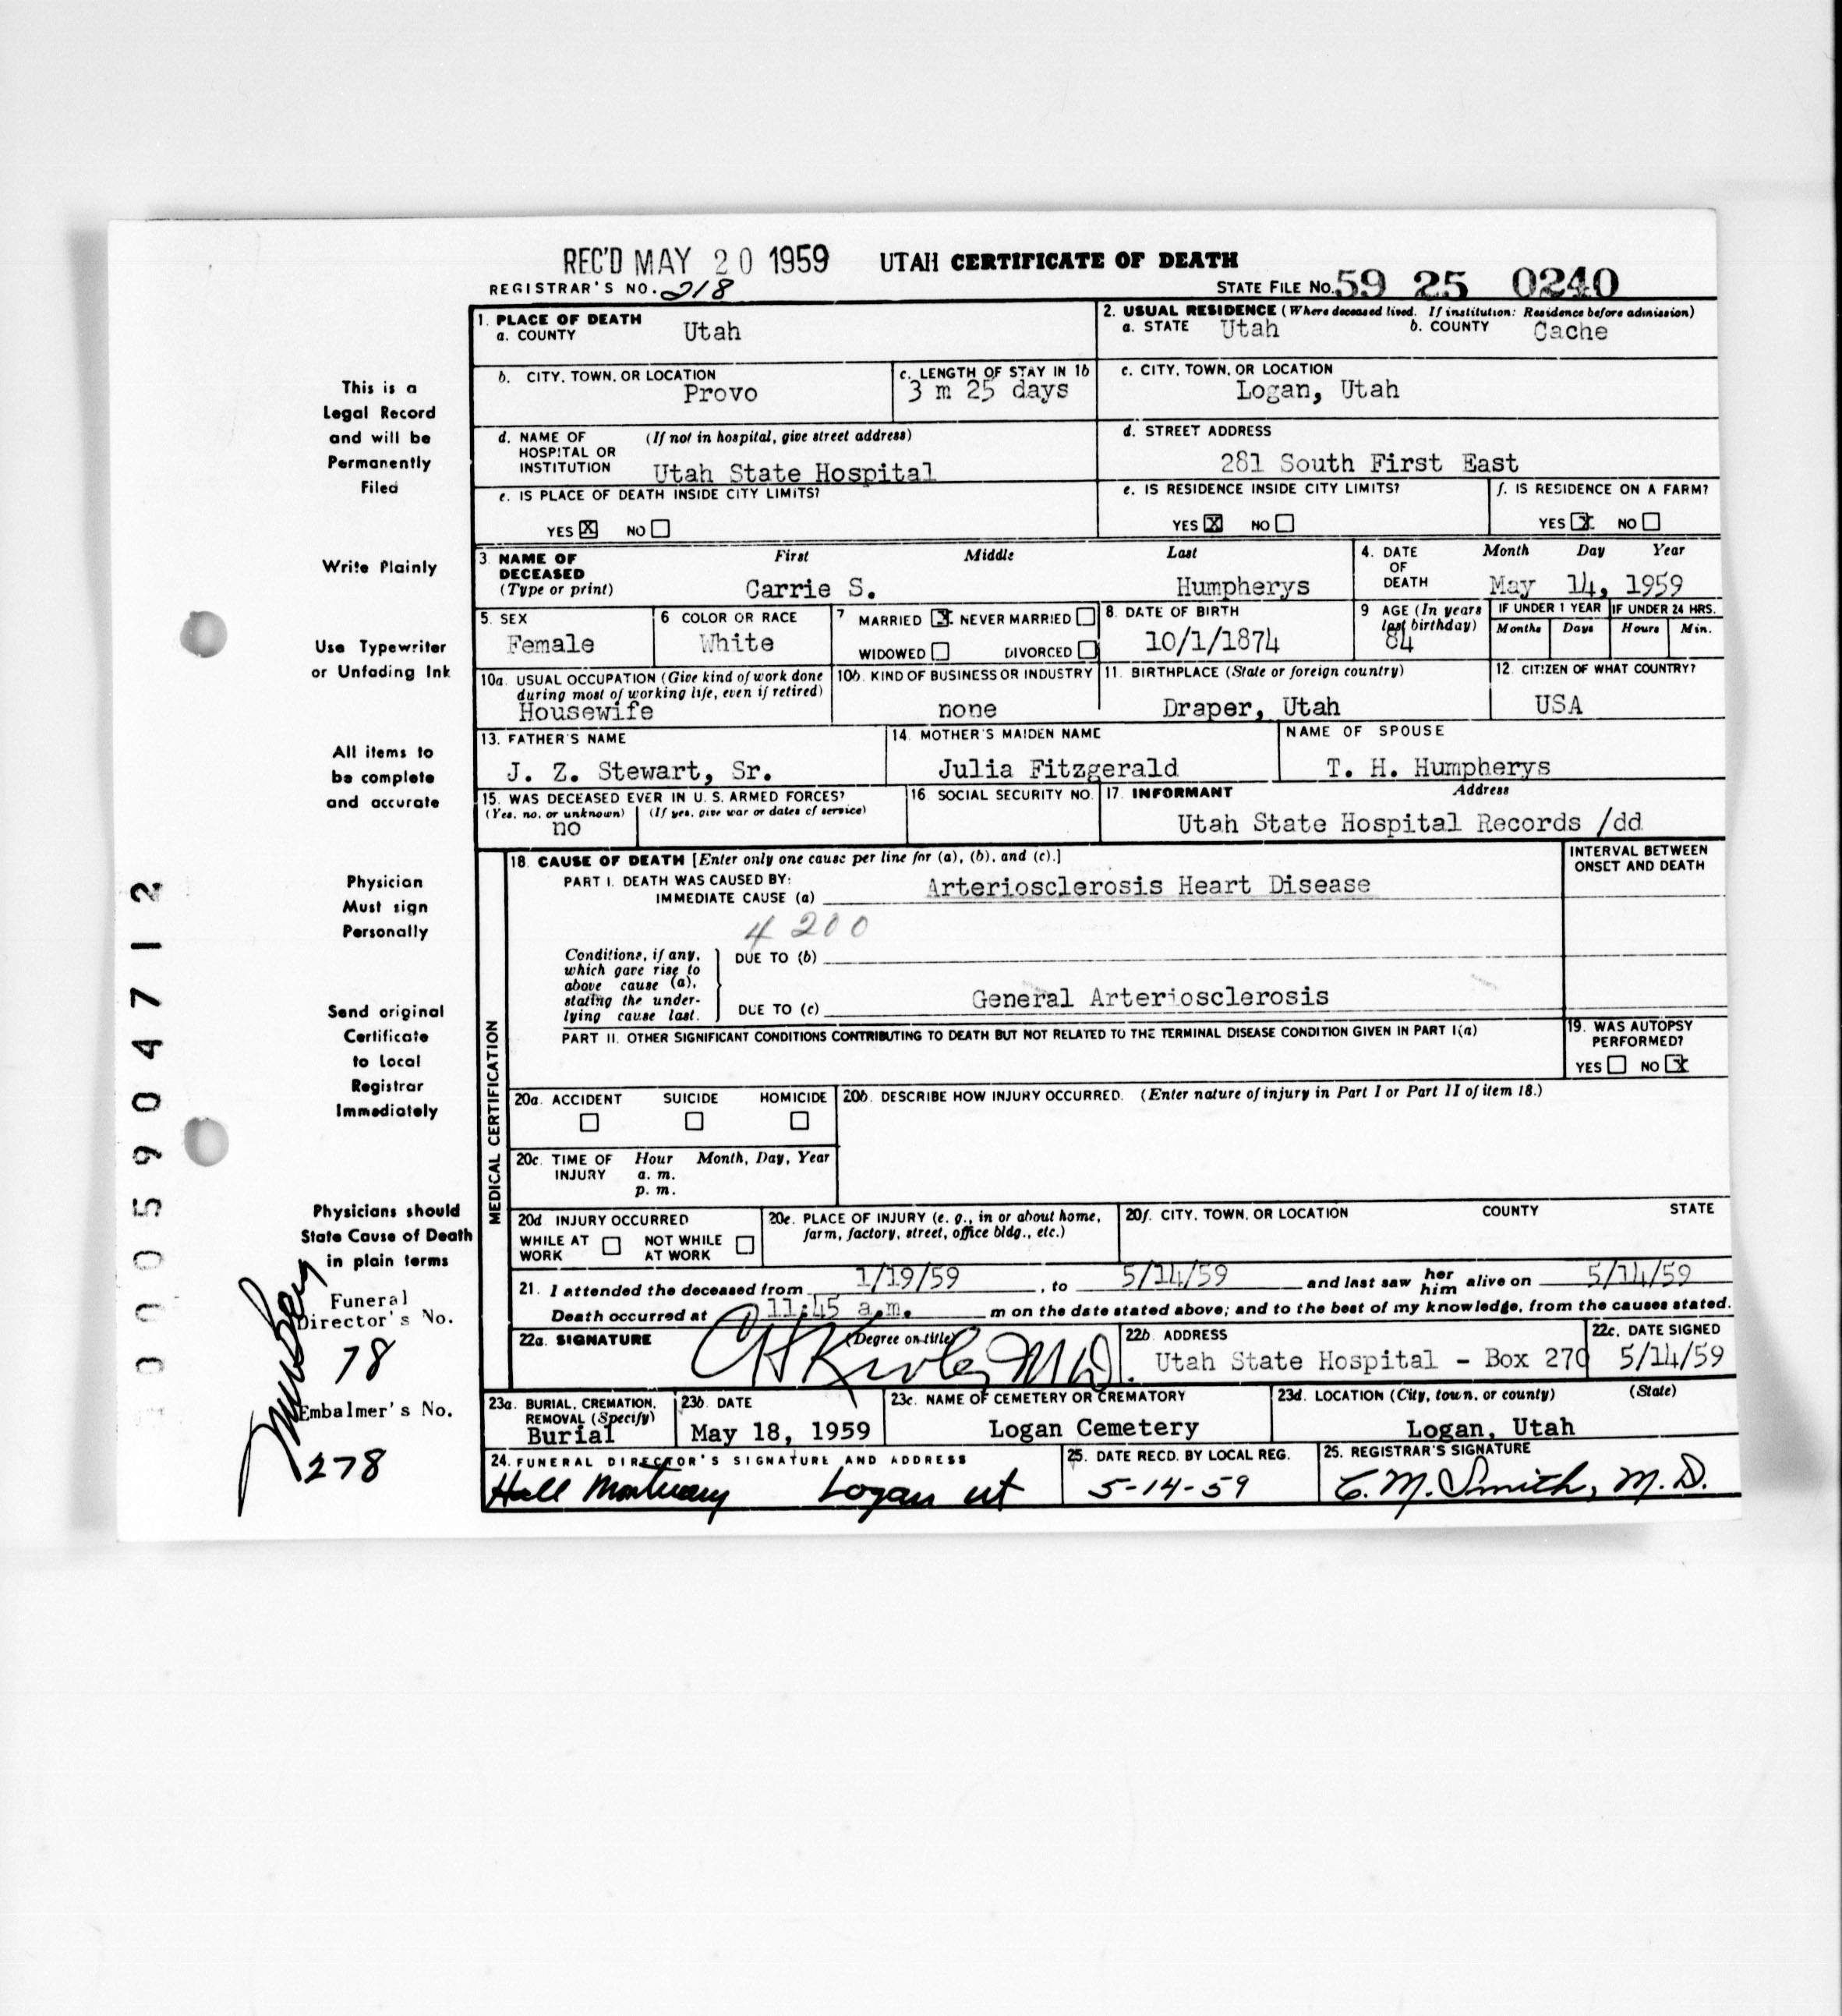 REC'D MAY 20 1959 UTAH CERTIFICATE OF DEATH
REGISTRAR'S NO. 218 STATE FILE NO. 59 25 0240
1. PLACE OF DEATH
a. COUNTY Utah
2. USUAL RESIDENCE (Where deceased lived. If institution: Residence before admission)
a. STATE Utah b. COUNTY Cache
b. CITY, TOWN, OR LOCATION
Provo
c. LENGTH OF STAY IN 1b
3 m 25 days
c. CITY, TOWN, OR LOCATION
Logan, Utah
d. NAME OF (If not in hospital, give street address)
HOSPITAL OR
INSTITUTION Utah State Hospital
d. STREET ADDRESS
281 South First East
e. IS PLACE OF DEATH INSIDE CITY LIMITS?
YES X NO
e. IS RESIDENCE INSIDE CITY LIMITS?
YES X NO
f. IS RESIDENCE ON A FARM?
YES X NO
3. NAME OF First Middle Last
DECEASED
(Type or print) Carrie S. Humpherys
4. DATE Month Day Year
OF
DEATH May 14, 1959
5. SEX
Female
6 COLOR OR RACE
White
7 MARRIED X NEVER MARRIED
WIDOWED DIVORCED
8. DATE OF BIRTH
10/1/1874
9 AGE (In years
last birthday)
84
IF UNDER 1 YEAR IF UNDER 24 HRS.
Months Days Hours Min.
10a. USUAL OCCUPATION (Give kind of work done
during most of working life, even if retired)
Housewife
10b. KIND OF BUSINESS OR INDUSTRY
none
11. BIRTHPLACE (State or foreign country)
Draper, Utah
12. CITIZEN OF WHAT COUNTRY?
USA
13. FATHER'S NAME
J. Z. Stewart, Sr.
14. MOTHER'S MAIDEN NAME
Julia Fitzgerald
NAME OF SPOUSE
T. H. Humpherys
15. WAS DECEASED EVER IN U. S. ARMED FORCES?
(Yes, no, or unknown) (If yes, give war or dates of service)
no
16. SOCIAL SECURITY NO.
17. INFORMANT Address
Utah State Hospital Records /dd
MEDICAL CERTIFICATION
18. CAUSE OF DEATH [Enter only one cause per line for (a), (b), and (c).]
PART I. DEATH WAS CAUSED BY:
IMMEDIATE CAUSE (a) Arteriosclerosis Heart Disease
INTERVAL BETWEEN
ONSET AND DEATH
4200
Conditions, if any,
which gave rise to
above cause (a),
stating the under-
lying cause last.
DUE TO (b)
DUE TO (c) General Arteriosclerosis
PART II. OTHER SIGNIFICANT CONDITIONS CONTRIBUTING TO DEATH BUT NOT RELATED TO THE TERMINAL DISEASE CONDITION GIVEN IN PART I(a)
19. WAS AUTOPSY
PERFORMED?
YES NO X
20a. ACCIDENT SUICIDE HOMICIDE
20b. DESCRIBE HOW INJURY OCCURRED. (Enter nature of injury in Part I or Part II of item 18.)
20c. TIME OF Hour Month, Day, Year
INJURY a. m.
p. m.
20d INJURY OCCURRED
WHILE AT NOT WHILE
WORK AT WORK
20e. PLACE OF INJURY (e. g., in or about home,
farm, factory, street, office bldg., etc.)
20f. CITY, TOWN, OR LOCATION COUNTY STATE
21. I attended the deceased from 1/19/59, to 5/14/59 and last saw her him alive on 5/14/59
Death occurred at 11:45 a.m. m on the date stated above; and to the best of my knowledge, from the causes stated.
22a. SIGNATURE (Degree or title)
M D.
22b. ADDRESS
Utah State Hospital - Box 270
22c. DATE SIGNED
5/14/59
23a. BURIAL, CREMATION,
REMOVAL (Specify)
Burial
23b. DATE
May 18, 1959
23c. NAME OF CEMETERY OR CREMATORY
Logan Cemetery
23d. LOCATION (City, town, or county) (State)
Logan, Utah
24. FUNERAL DIRECTOR'S SIGNATURE AND ADDRESS
Hall Mortuary Logan ut
25. DATE RECD. BY LOCAL REG.
5-14-59
25. REGISTRAR'S SIGNATURE
C. M. Smith, M. D.
This is a
Legal Record
and will be
Permanently
Filed
Write Plainly
Use Typewriter
or Unfading Ink
All items to
be complete
and accurate
Physician
Must sign
Personally
Send original
Certificate
to Local
Registrar
Immediately
Physicians should
State Cause of Death
in plain terms
Funeral
Director's No.
78
Embalmer's No.
278
0005904712